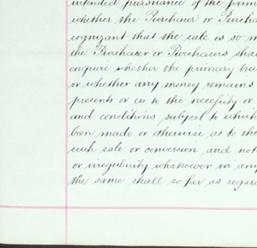 intended pursuance of the prim
whether the Purchaser or Purcha
cognizant that the sale is so m
the Purchaser or Purchasers shal
enquire whether the primary tru
or whether any money remains
presents or as to the necessity or
and conditions subject to which
been made or otherwise as to the
such sale or conversion and not
or irregularity whatsoever in any
the same shall so far as regard